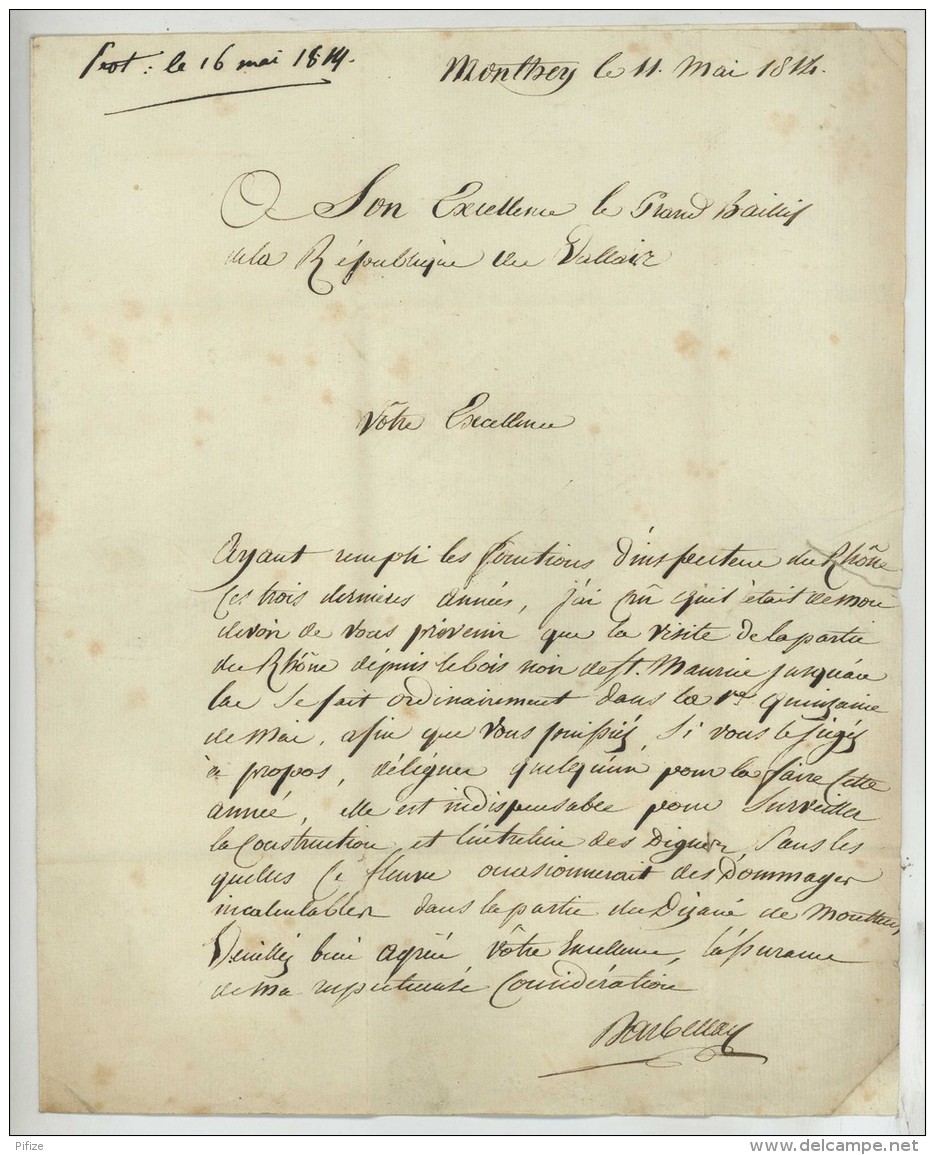 Prot: le 16 mai 1814.
Monthey le 11. Mai 1814.
A Son Excellence le Grand Baillif
de la République du Vallais
Vôtre Excellence
Ayant rempli les fonctions d'inspecteur du Rhône
ces trois dernieres années, j'ai crû qu'il était de mon
devoir de vous prévenir que la visite de la partie
du Rhône dépuis le bois noir de St. Maurice jusqu'au
lac se fait ordinairement dans la 1re. quinzaine
de Mai, afin que vous puissiés, si vous le jugés
à propos, déléguer quelqu'un pour la faire cette
année, elle est indispensable pour surveiller
la construction et l'entretien des Digues, sans les
quelles ce fleuve occasionnerait des Dommages
incalculables dans la partie du Dizain de Monthey,
Veuillés bien agréer Vôtre Excellence, l'assurance
de ma respectueuse Considération
Barbellay
Pifize
www.delcampe.net